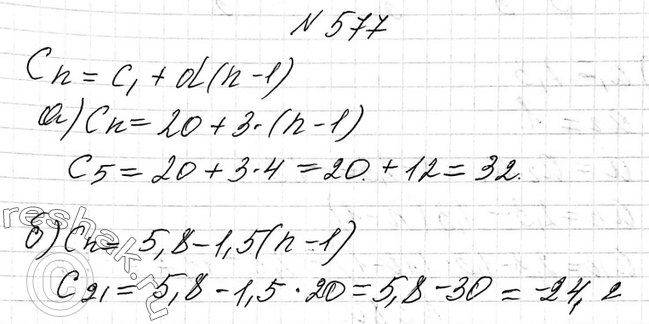 N 577
Cn = C1 + d(n-1)
а) Cn = 20 + 3·(n-1)
C5 = 20 + 3·4 = 20 + 12 = 32.
б) Cn = 5,8 - 1,5(n-1)
C21 = 5,8 - 1,5·20 = 5,8 - 30 = -24,2
reshak.ru